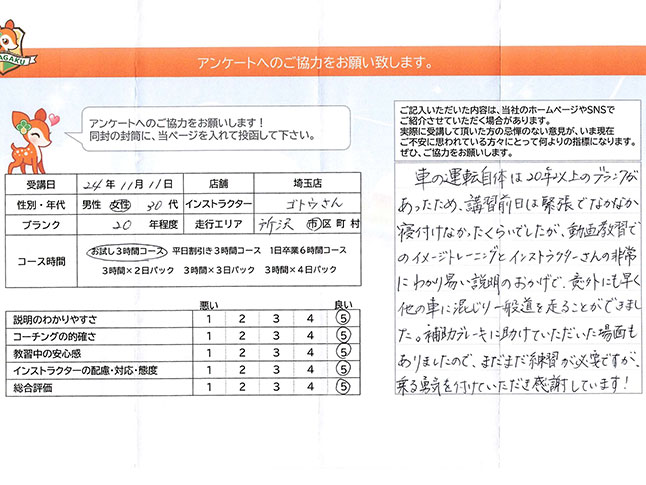 AGAKU
アンケートへのご協力をお願い致します。
アンケートへのご協力をお願いします!
同封の封筒に、当ページを入れて投函して下さい。
受講日 24年 11月 11日 店舗 埼玉店
性別・年代 男性 女性 30代 インストラクター ゴトウさん
ブランク 20 年程度 走行エリア 所沢 市区町村
コース時間 お試し3時間コース 平日割引き3時間コース 1日卒業6時間コース
3時間×2日パック 3時間×3日パック 3時間×4日パック
悪い 良い
説明のわかりやすさ 1 2 3 4 5
コーチングの的確さ 1 2 3 4 5
教習中の安心感 1 2 3 4 5
インストラクターの配慮・対応・態度 1 2 3 4 5
総合評価 1 2 3 4 5
ご記入いただいた内容は、当社のホームページやSNSで
ご紹介させていただく場合があります。
実際に受講して頂いた方の忌憚のない意見が、いま現在
ご不安に思われている方々にとって何よりの指標になります。
ぜひ、ご協力をお願いします。
車の運転自体は20年以上のブランクが
あったため、講習前日は緊張でなかなか
寝付けなかったくらいでしたが、動画教習で
のイメージトレーニングとインストラクターさんの非常
にわかり易い説明のおかげで、意外にも早く
他の車に混じり一般道を走ることができまし
た。補助ブレーキに助けていただいた場面も
ありましたので、まだまだ練習が必要ですが、
乗る勇気を付けていただき感謝しています!